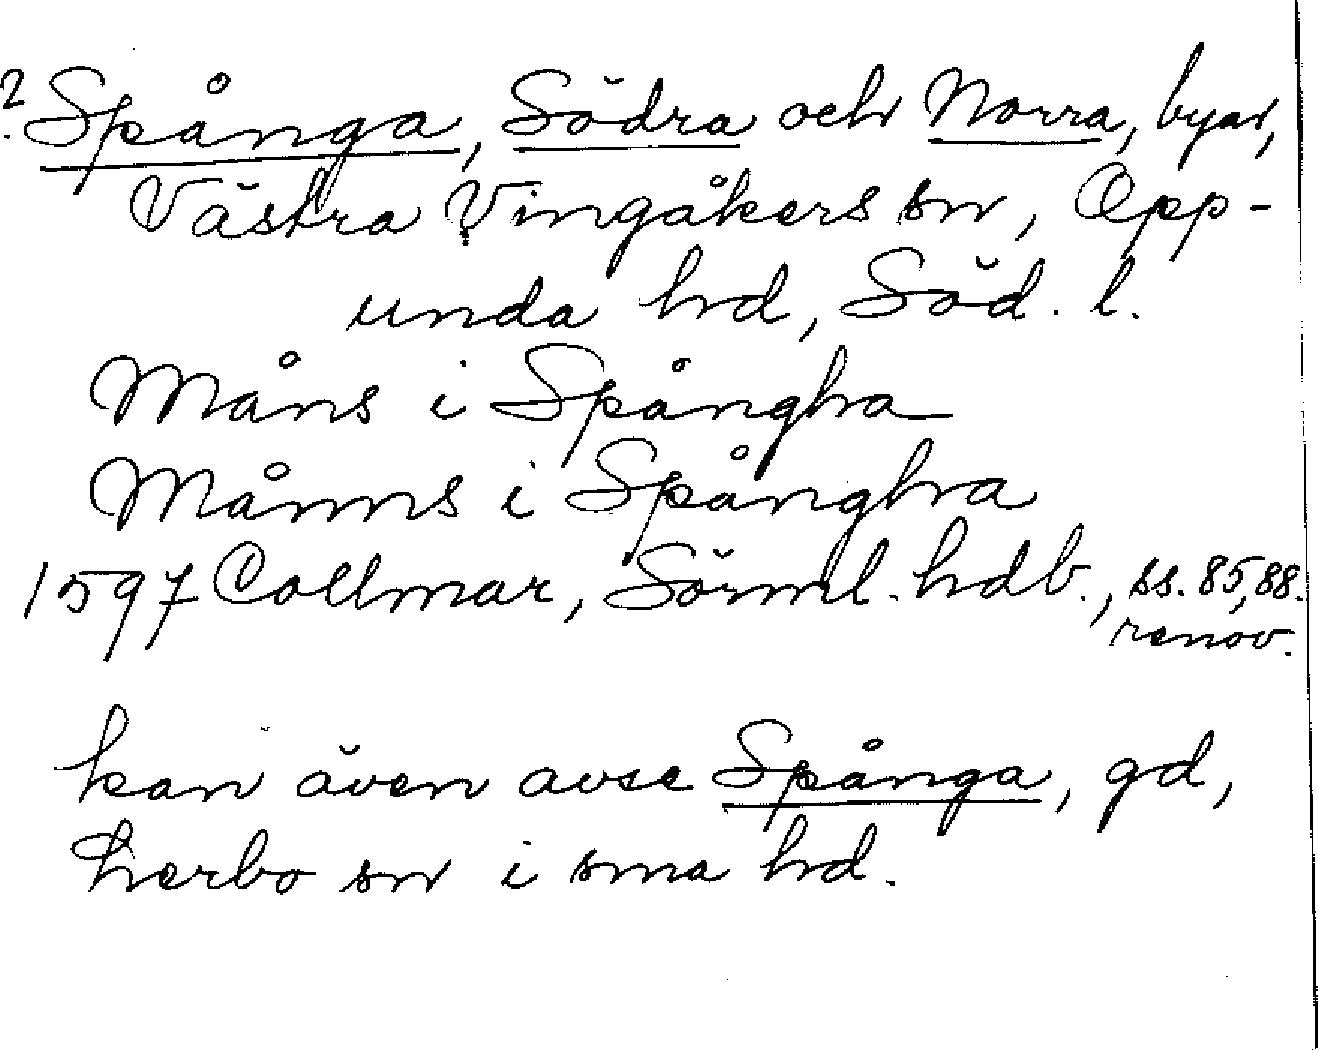 ? Spånga, Södra och Norra, byar,
Västra Vingåkers sn, Opp-
unda hd, Söd. l.
Måns i Spångha
Månns i Spångha
1597 Collmar, Sörml. hdb., ss. 85, 88.
renov.
kan även avse Spånga, gd,
Lerbo sn i sma hd.